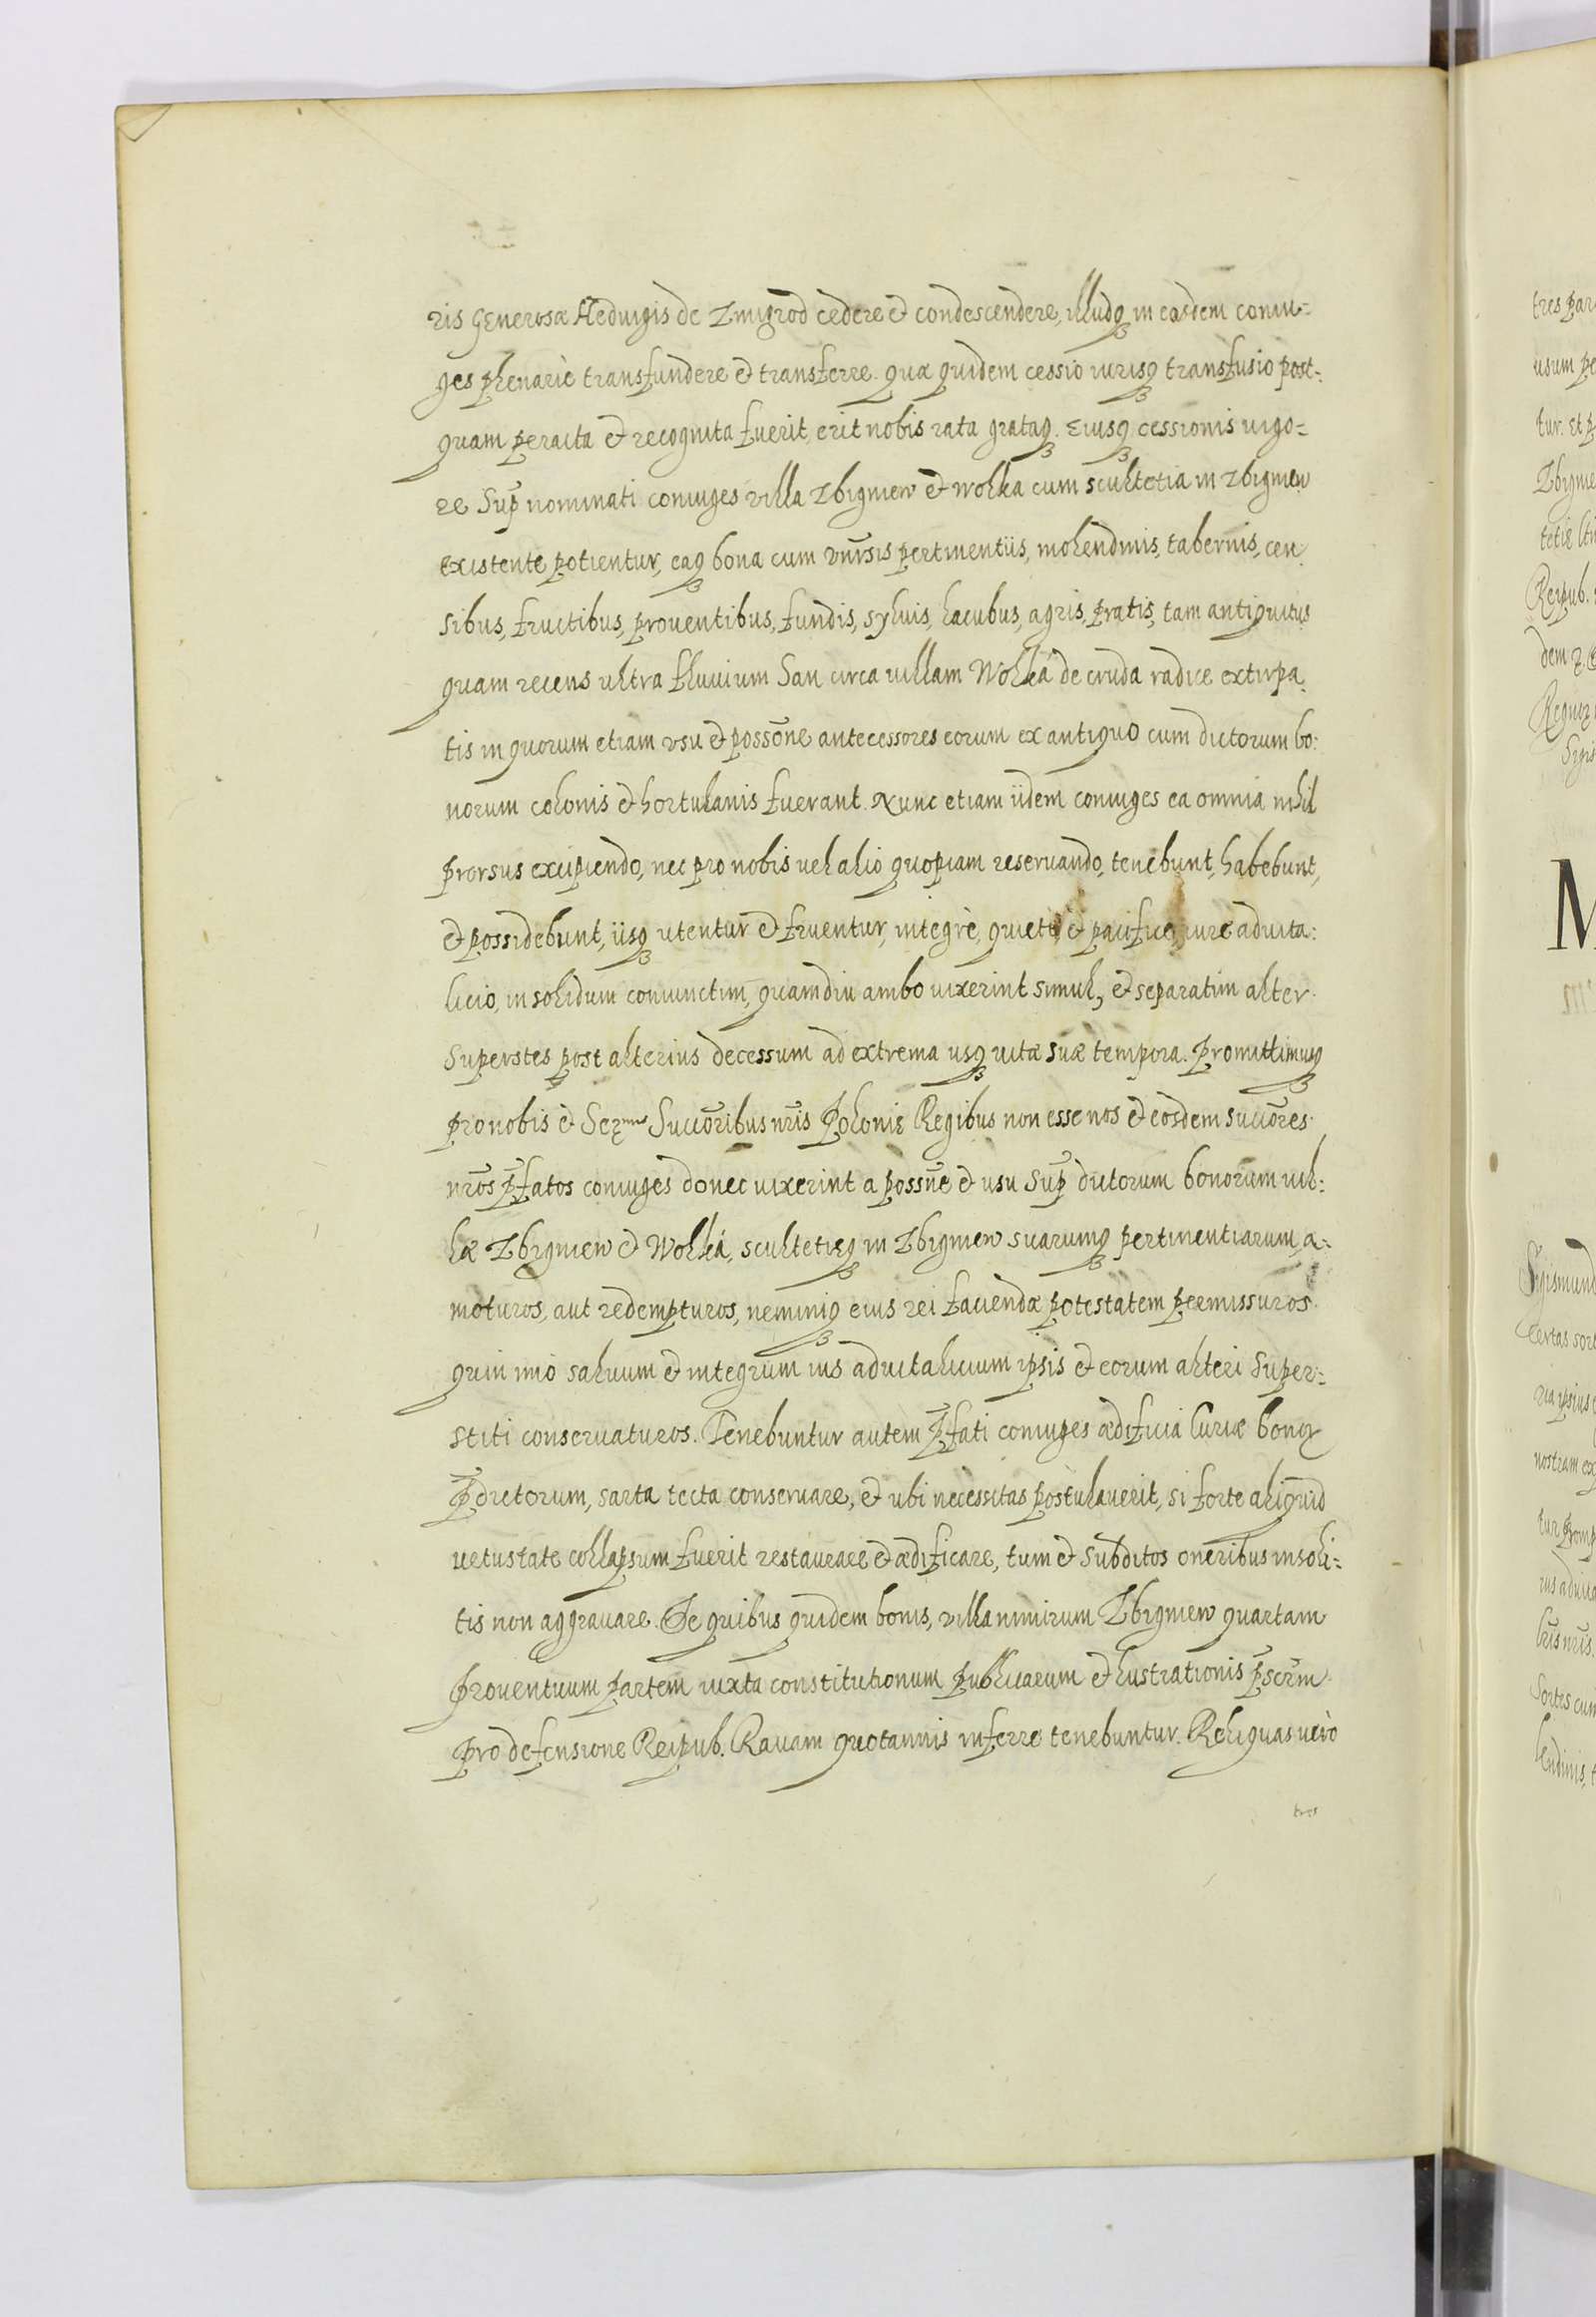 ris Generosæ Heduigis de Zmigrod cedere et condescendere, illudq3 in easdem coniu=
ges plenariè transfundere et transferre. quæ quidem cessio iurisq3 transfusio post=
quam peracta et recognita fuerit, erit nobis rata grataq3. Eiusq3 cessionis uigo=
re Sup̃ nominati coniuges villa Zbigniew et Wolka cum scultetia in Zbigniew
existente potientur, eaq3 bona cum vniũsis pertinentiis, molendinis, tabernis, cen
sibus, fructibus, prouentibus, fundis, syluis, lacubus, agris, pratis, tam antiquitus
quam recens ultra fluuium San circa uillam Wolká de cruda radice extirpa
tis in quorum etiam vsu et possõne antecessores eorum ex antiquo cum dictorum bo:
norum colonis et hortulanis fuerant. Nunc etiam iidem coniuges ea omnia nihil
prorsus excipiendo, nec pro nobis uel alio quopiam reseruando, tenebunt, habebunt,
et possidebunt, iisq3 utentur et fruentur, integrè, quietè et pacifice, iure aduita:
licio, in solidum coniunctim, quamdiu ambo uixerint simul, et separatim alter
Superstes post alterius decessum ad extrema usq3 uitæ suæ tempora. Promittimusq3
pro nobis et Ser.mis Succõribus nr̃is Polonię Regibus non esse nos et eosdem succõres
nr̃os p̃fatos coniuges donec uixerint a possñe et usu Sup̃ dictorum bonorum uil=
læ Zbigniew et Wolká, scultetięq3 in Zbigniew suarumq3 pertinentiarum, a=
moturos, aut redempturos, neminiq3 eius rei faciendæ potestatem permissuros.
quin imò saluum et integrum ius aduitalicium ipsis et eorum alteri Super=
stiti conseruaturos. Tenebuntur autem p̃fati coniuges ædificia Curiæ bonoꝝ
p̃dictorum, sarta tecta conseruare, et ubi necessitas postulauerit, si forte aliquid
uetustate collapsum fuerit restaurare et ædificare, tum et Subditos oneribus insoli=
tis non aggrauare. De quibus quidem bonis, villa nimirum Zbigniew quartam
prouentuum partem iuxta constitutionum publicarum et lustrationis p̃scr̃m
pro defensione Reipub. Rauam quotannis inferre tenebuntur. Reliquas uerò
tres
tres par
usum pe
tur. Et p
Zbignie
Reipub.
dem
M
Sigismund
Certas sor
ria ipsius
nostram ex
ius aduita
Sortes cum
lendinis, t